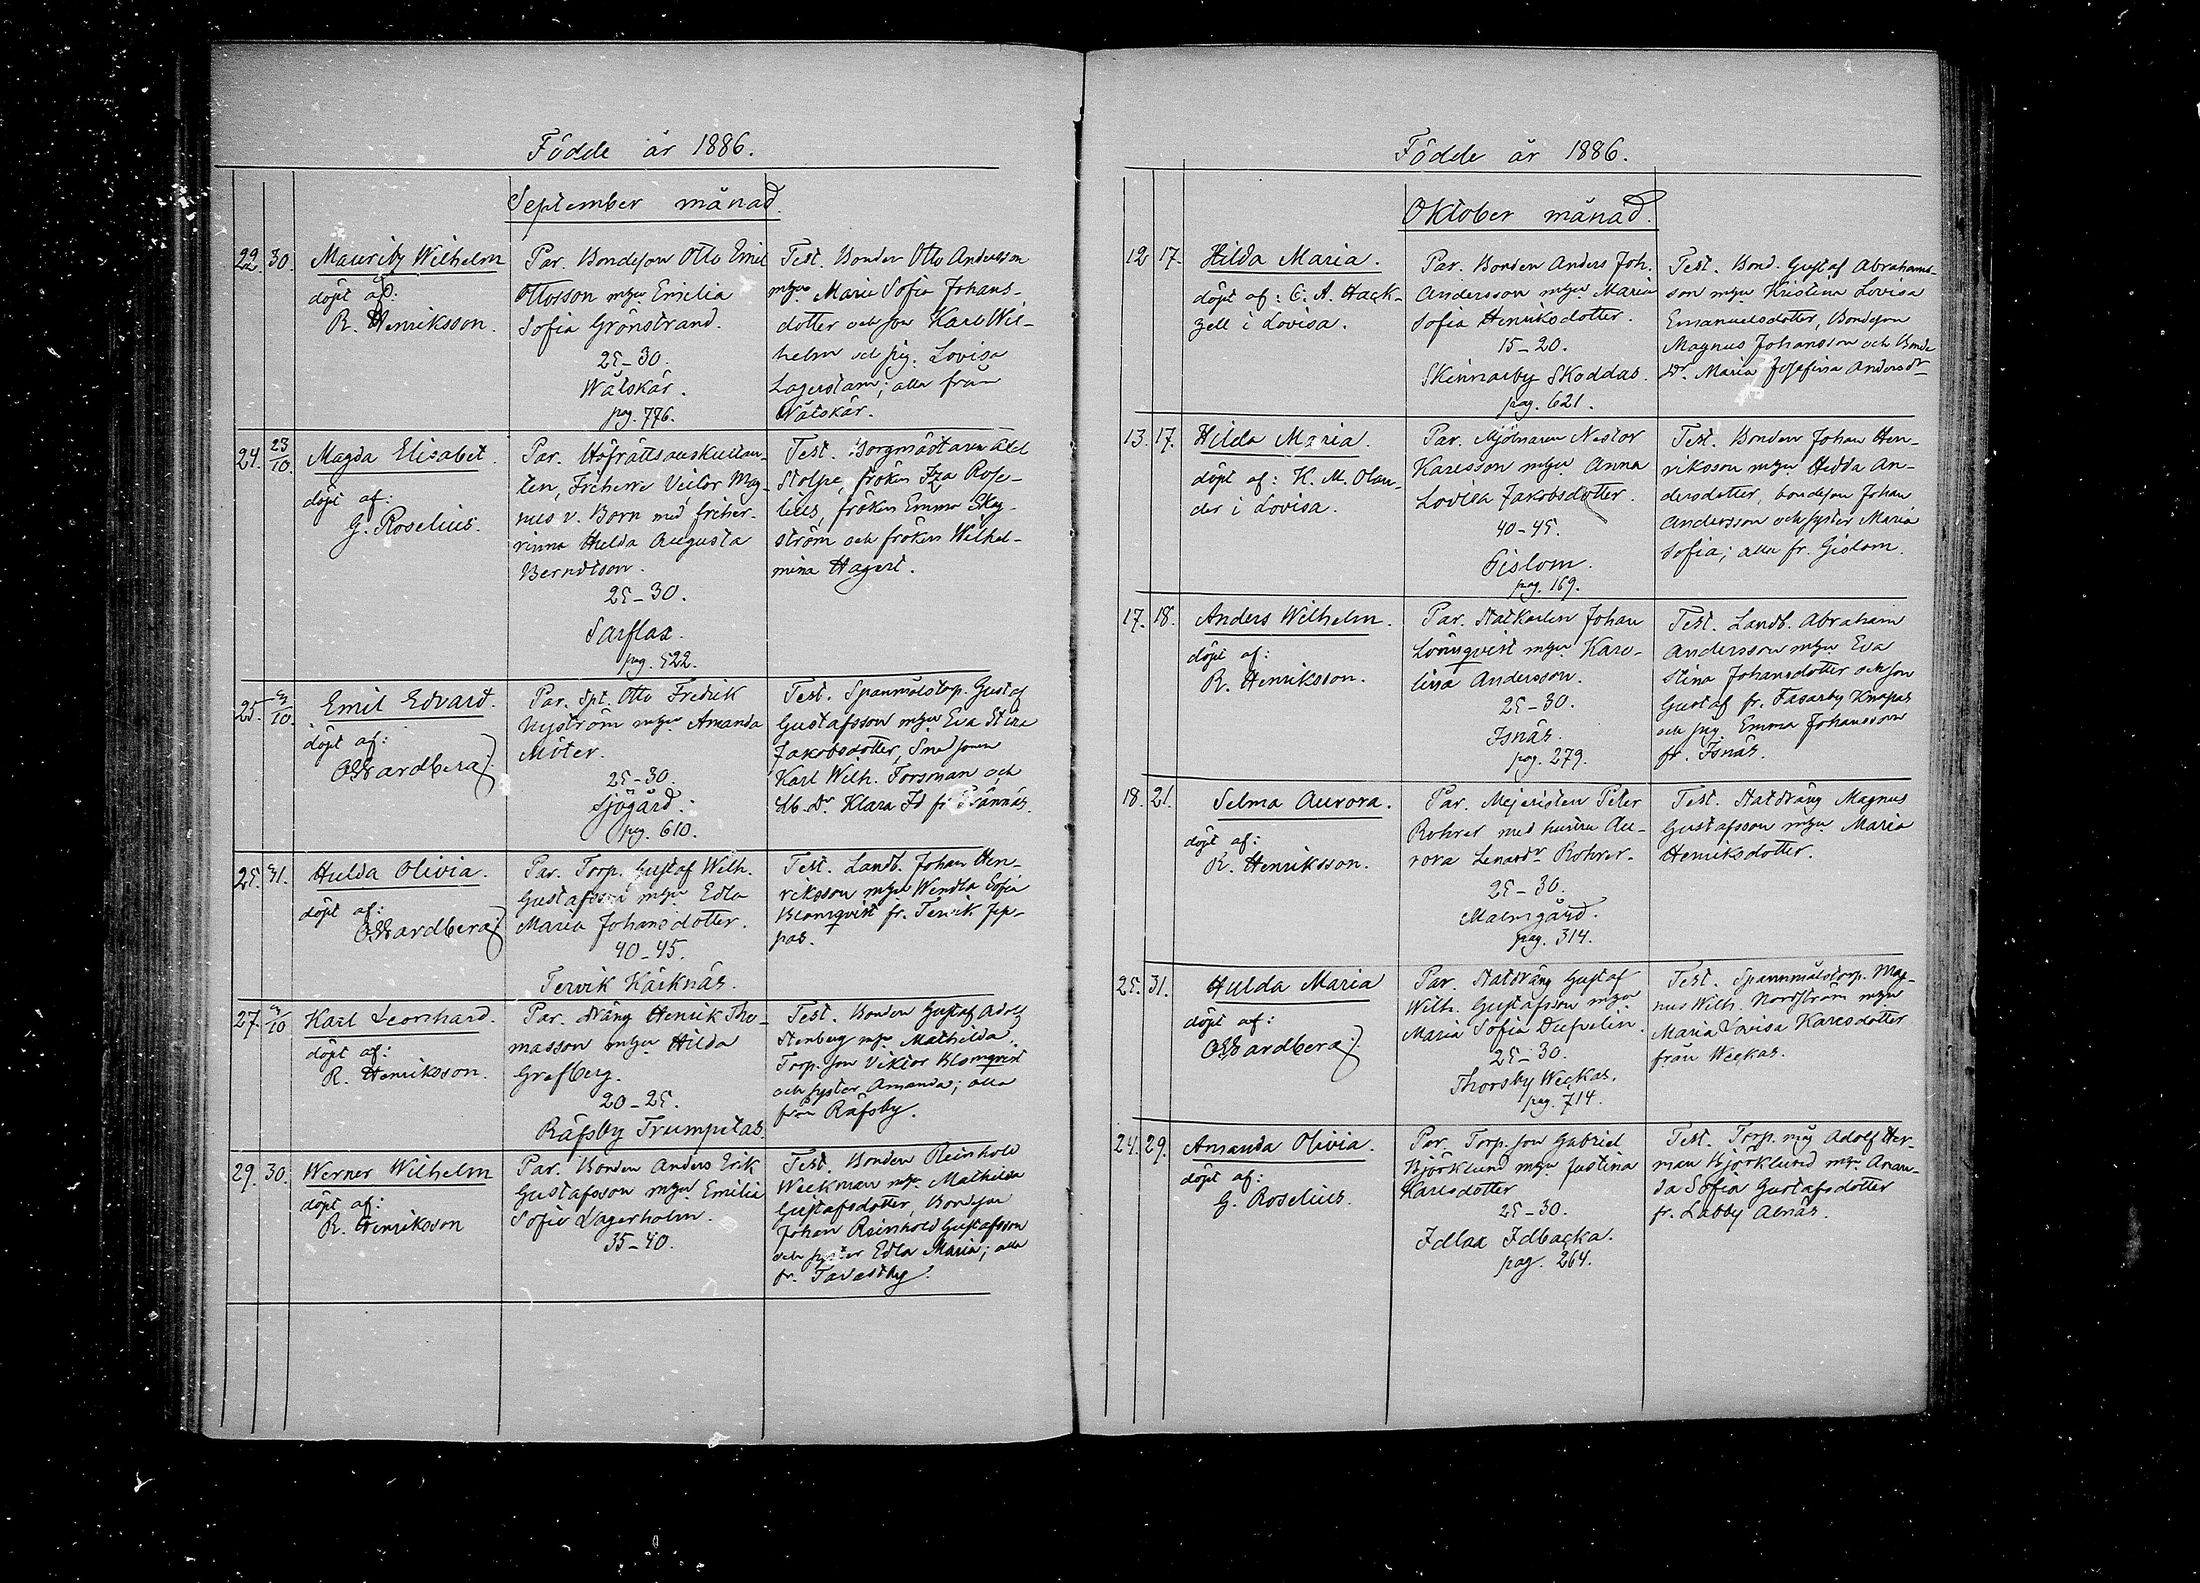 Födde år 1886.
September månad.
22. 30. Mauritz Wilhelm
döpt af:
R. Henriksson.
Par. Bondeson Otto Emil
Ottosson m hu Emilia
Sofia Grönstrand.
25-30.
Wåtskär.
pag. 776.
Test. Bonden Otto Andersson
m hu Maria Sofia Johans-
dotter och son Karl Wil-
helm och pig. Lovisa
Lagerstam; alla från
Wåtskär.
24. 23/10. Magda Elisabet.
döpt af:
G. Roselius.
Par. Hofrättsauskultan-
ten, Friherre Victor Mag-
nus v. Born med friher-
rinna Hulda Augusta
Berndtson.
25-30.
Sarflax.
pag. 522.
Test. Borgmästaren
Stolpe, fröken Rose-
lius, fröken Emma
ström och fröken Wilhel-
mina Hagert.
25. 3/10. Emil Edvard.
döpt af:
Wardberg
Par. Spt. Otto Fredrik
Nyström m hu Amanda
Miter.
25-30.
Sjögård.
pag. 610.
Test. Spanmålstorp. Gustaf
Gustafsson m hu Eva Stina
Jakobsdotter, Smedsonen
Karl Wilh. Forsman och
Lb. Dr Klara Id fr.
25. 31. Hulda Olivia.
döpt af:
Wardberg
Par. Torp. Gustaf Wilh.
Gustafsson m hu Edla
Maria Johansdotter.
40-45.
Tervik Käcknäs.
Test. Landb. Johan Hen-
riksson m hu Wendla Sofia
Blomqvist fr. Tervik Jep-
pas.
27. 3/10 Karl Leonhard.
döpt af:
R. Henriksson.
Par. dräng Henrik Tho-
masson m hu Hilda
Grefberg.
20-25.
Räfsby Trumpetas.
Test. Bonden Gustaf Adolf
Stenberg m hu Mathilda,
Torp. son Viktor Blomqvist
och syster Amanda; alla
från Räfsby.
29. 30. Werner Wilhelm
döpt af:
R. Henriksson
Par. Bonden Anders Erik
Gustafsson m hu Emilia
Sofia Lagerholm.
35-40.
Test. Bonden Reinhold
Weckman m hu Mathilda
Gustafsdotter, Bondeson
Johan Reinhold Gustafsson
och syster Edla Maria; alla
fr. Tavastby.
Födde år 1886.
Oktober månad.
12 17. Hilda Maria.
döpt af: C. A. Hack-
zell i Lovisa.
Par. Bonden Anders Joh.
Andersson m hu Maria
Sofia Henriksdotter.
15-20.
Skinnarby Skoddas.
pag. 621.
Test. Bond. Gustaf Abrahams-
son m hu Kristina Lovisa
Emanuelsdotter, Bondeson
Magnus Johansson och Bonde
Dr. Maria Josefina Andersdr
13. 17. Hilda Maria.
döpt af: K. M. Olan-
der i Lovisa.
Par. Mjölnaren Nestor
Karlsson m hu Anna
Lovisa Jakobsdotter.
40-45.
Gislom.
pag. 169.
Test. Bonden Johan Hen-
riksson m hu Hedda An-
dersdotter, bondeson Johan
Andersson och syster Maria
Sofia; alla fr. Gislom.
17. 18. Anders Wilhelm.
döpt af:
R. Henriksson.
Par. Statkarlen Johan
Lönnqvist m hu Karo-
lina Andersson.
25-30.
Isnäs.
pag. 279.
Test. Landb. Abraham
Andersson m hu Eva
Stina Johansdotter och son
Gustaf fr. Fasarby Knapas
och pig. Emma Johansson
fr. Isnäs.
18. 21. Selma Aurora.
döpt af:
R. Henriksson.
Par. Mejeristen Peter
Rohrer med hustru Au-
rora Lenardr Rohrer.
25-30.
Malmgård.
pag. 314.
Test. Statdräng Magnus
Gustafsson m hu Maria
Henriksdotter.
25. 31. Hulda Maria
döpt af:
Wardberg
Par. Statdräng Gustaf
Wilh. Gustafsson m hu
Maria Sofia Dufvelin.
25-30.
Thorsby Weckas.
pag. 714.
Test. Spannmålstorp. Mag-
nus Wilh. Nordström m hu
Maria Lovisa Karlsdotter
från Weckas.
24. 29. Amanda Olivia.
döpt af:
G. Roselius.
Par. Torp. son Gabriel
Björklund m hu Justina
Karlsdotter
25-30.
Idlax Idbacka.
pag. 264.
Test. Torp. måg Adolf Her-
man Björklund m hu Aman-
da Sofia Gustafsdotter
fr. Labby Alnäs.